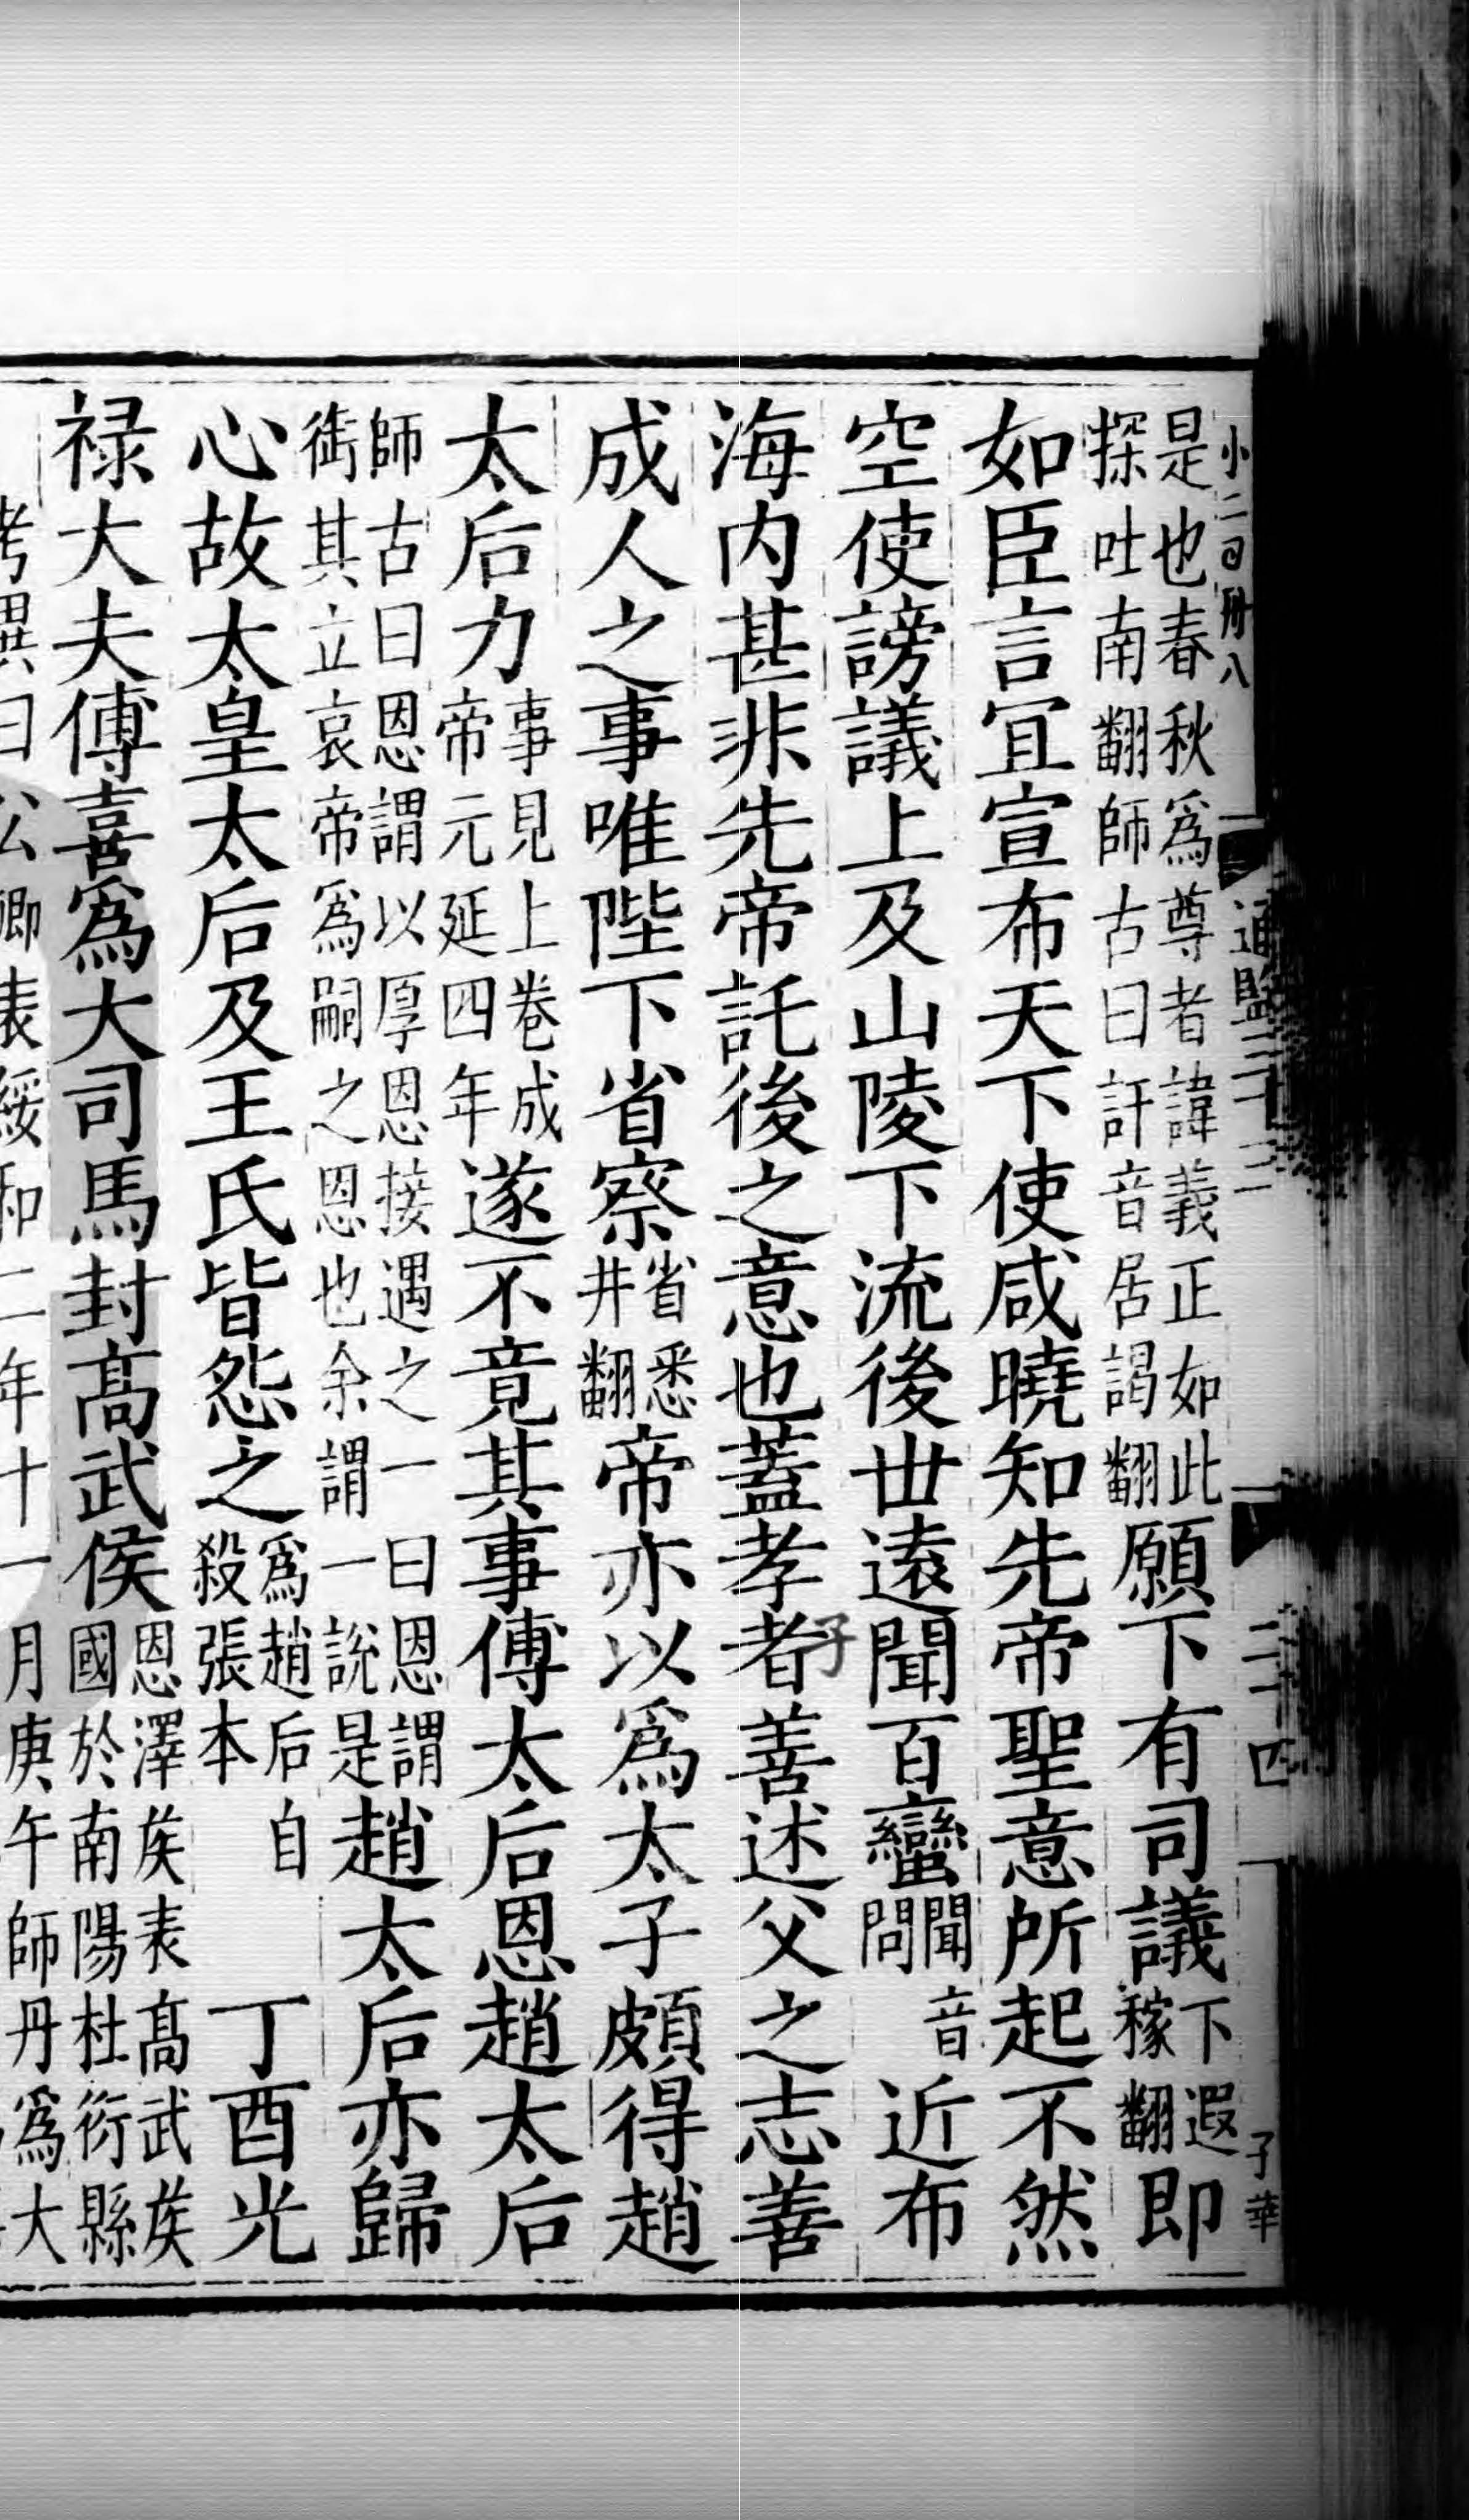 小二百卅八 通鑑三十三 二十四 子華
是也春秋爲尊者諱義正如此探吐南翻師古曰訐音居謁翻願下有司議下遐稼翻即
如臣言宜宣布天下使咸曉知先帝聖意所起不然
空使謗議上及山陵下流後世遠聞百蠻聞音問近布
海内甚非先帝託後之意也蓋孝者子善述父之志善
成人之事唯陛下省察省悉井翻帝亦以爲太子頗得趙
太后力事見上卷成帝元延四年遂不竟其事傅太后恩趙太后
師古曰恩謂以厚恩接遇之一曰恩謂銜其立哀帝爲嗣之恩也余謂一説是趙太后亦歸
心故太皇太后及王氏皆怨之爲趙后自殺張本丁酉光
禄大夫傅喜爲大司馬封髙武侯恩澤矦表髙武矦國於南陽杜衍縣
考異曰公卿表綏和二年十一月庚午師丹爲大